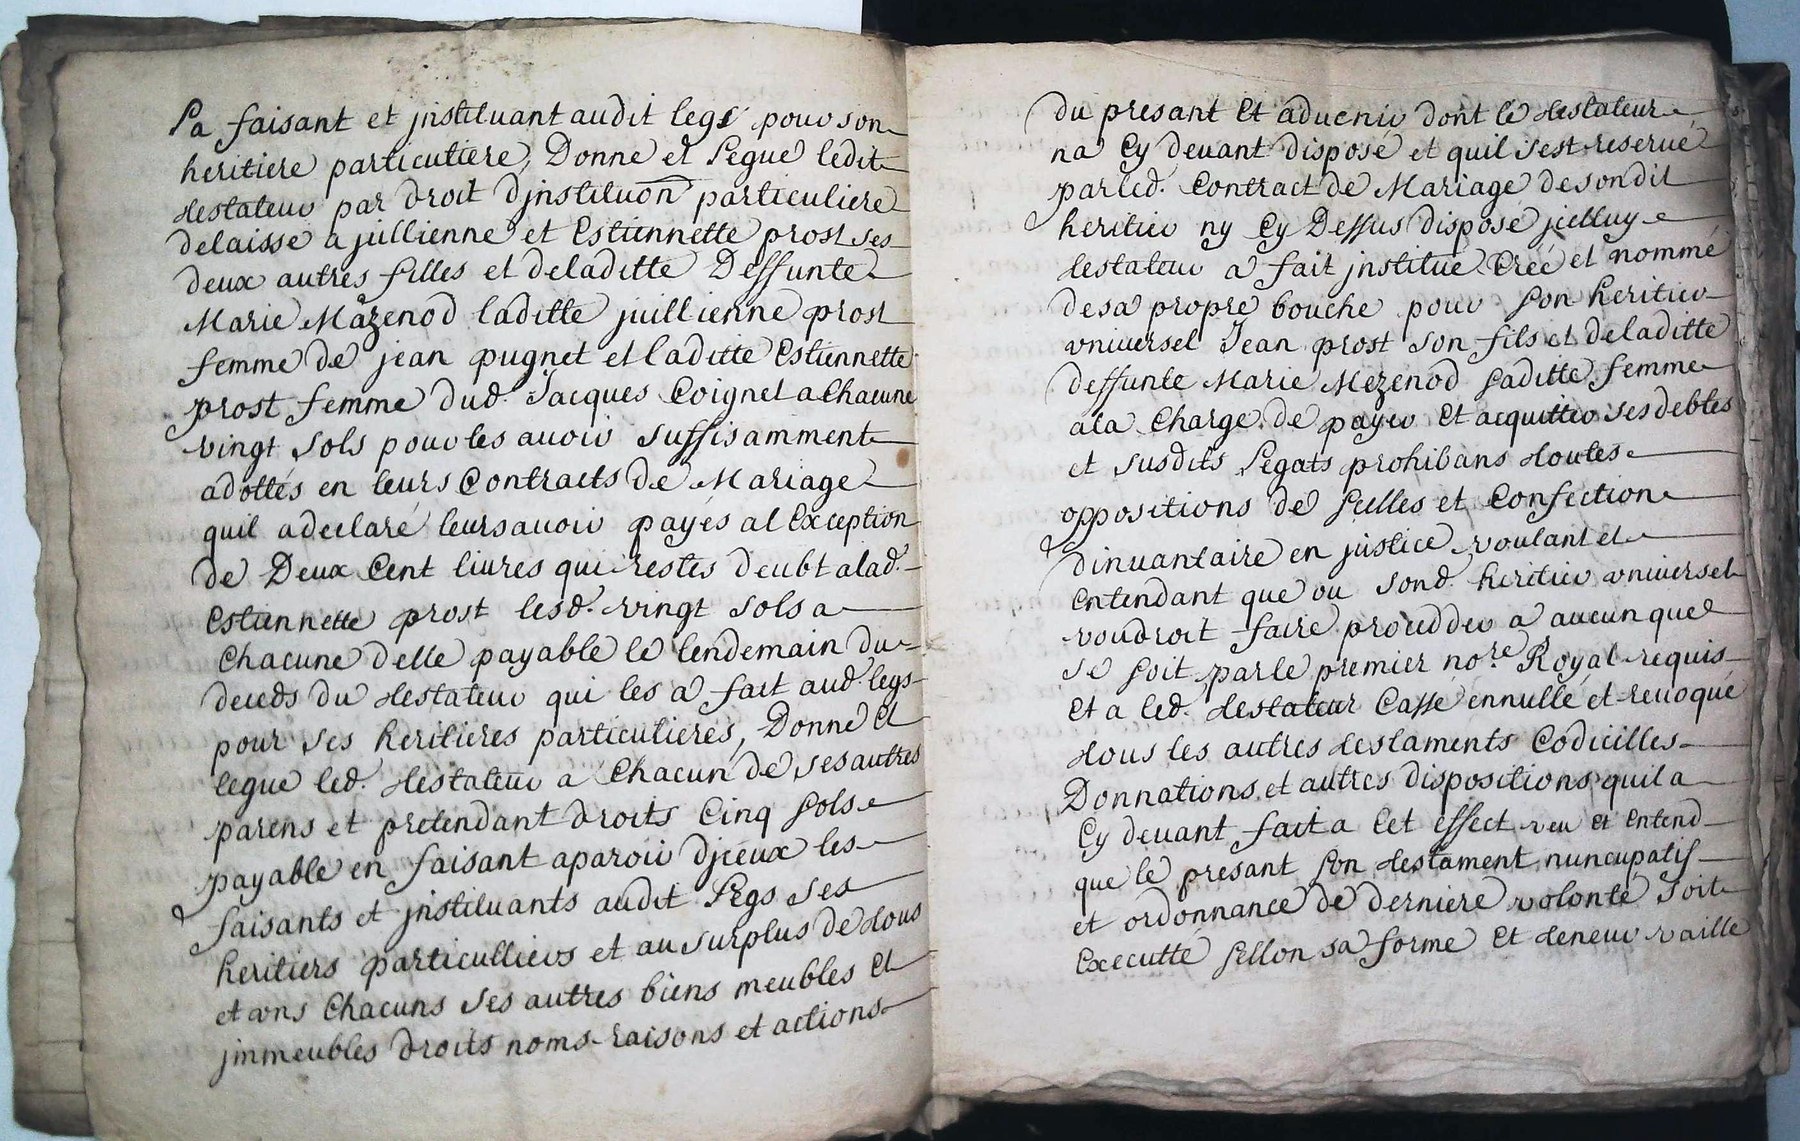 La faisant et jnstituant audit legs pour son
heritiere particuliere, Donne et Legue ledit
testateur par droit Djnstituon particuliere
delaisse a jullienne et Estiennette prost ses
deux autres filles et deladitte Deffunte
Marie Mazenod laditte juillienne prost
femme de jean pugnet et laditte Estiennette
prost femme dud. Jacques Coignet a Chacune
vingt sols pour les auoir suffisamment
adottés en leurs Contracts de Mariage
quil a declaré leurs auoir payés al Exception
de Deux Cent liures qui restes deubt a lad.
Estiennette prost lesd. vingt sols a
Chacune delle payable le lendemain du
deceds du testateur qui les a fait aud. legs
pour ses heritieres particulieres, Donne et
legue led. testateur a Chacun de ses autres
parens et pretendant droits Cinq sols
payable en faisant aparoir Djceux les
faisants et jnstituants audit Legs ses
heritiers particulliers et au surplus de tous
et vns Chacuns ses autres biens meubles et
jmmeubles droits noms raisons et actions
du presant et aduenir dont le testateur
na Cy deuant disposé et quil sest reserué
par led. Contract de Mariage de sondit
heritier ny Cy Dessus disposé jcelluy
testateur a fait jnstitué Créé et nommé
de sa propre bouche pour son heritier
vniuersel Jean prost son fils et deladitte
deffunte Marie Mezenod saditte femme
a la Charge de payer et acquitter ses debtes
et susdits Legats prohibans toutes
oppositions de scelles et Confection
dinuantaire en justice voulant et
Entendant que ou sond. heritier vniuersel
voudroit faire proudder a aucun que
se soit par le premier nore. Royal requis
Et a led. testateur Cassé ennullé et reuoqué
tous les autres testaments Codicilles
Donnations et autres dispositions quil a
Cy deuant fait a Cet effect veu et Entend
que le presant son testament nuncupatif
et ordonnance de derniere volonté soit
Executté sellon sa forme et teneur vaille